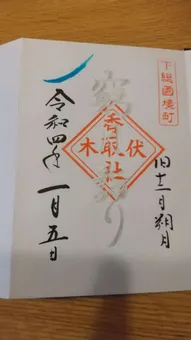 下総國境町
旧十二月朔月
香取社
伏木
令和四年一月五日